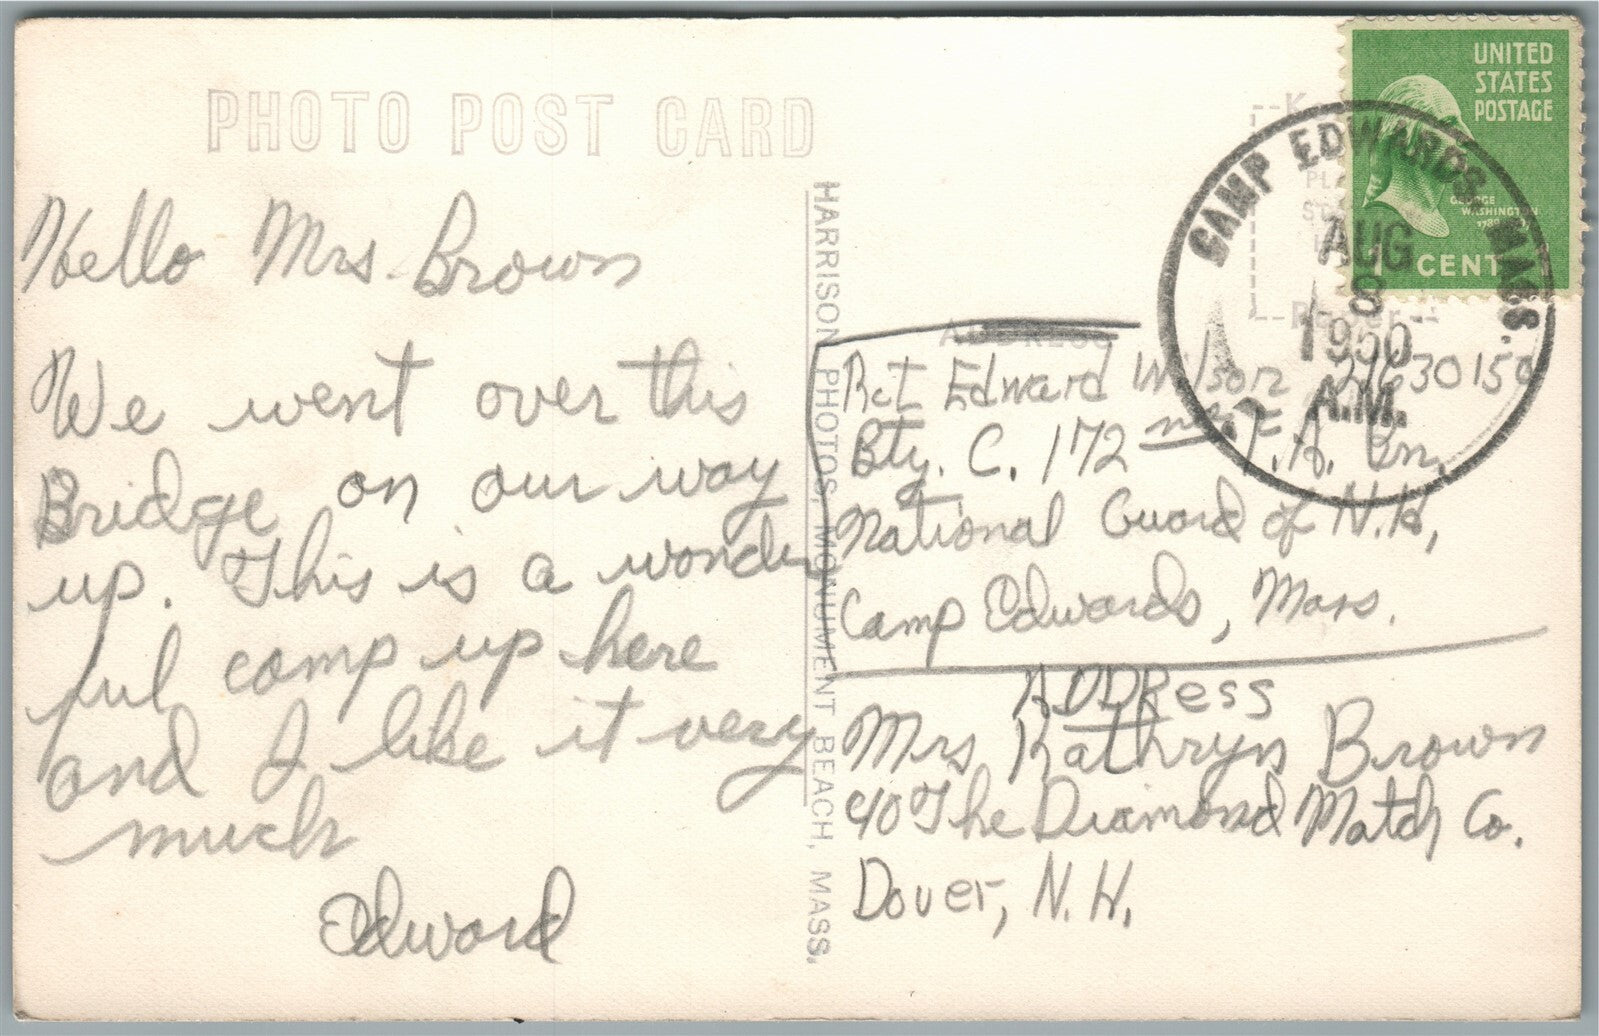 PHOTO POST CARD
Hello Mrs. Brown
We went over this
Bridge on our way
up. This is a wonder
ful camp up here
and I like it very
much
Edward
HARRISON PHOTOS, MONUMENT BEACH, MASS.
UNITED
STATES
POSTAGE
GEORGE
WASHINGTON
1 CENT
CAMP EDWARDS, MASS.
AUG
8
1950
A.M.
ADDRESS
Rct Edward Wilson
Bty. C. 172 F.A. Bn,
National Guard of N.H,
Camp Edwards, Mass.
ADDRess
Mrs Kathryn Brown
c/o The Diamond Match Co.
Dover, N.H,